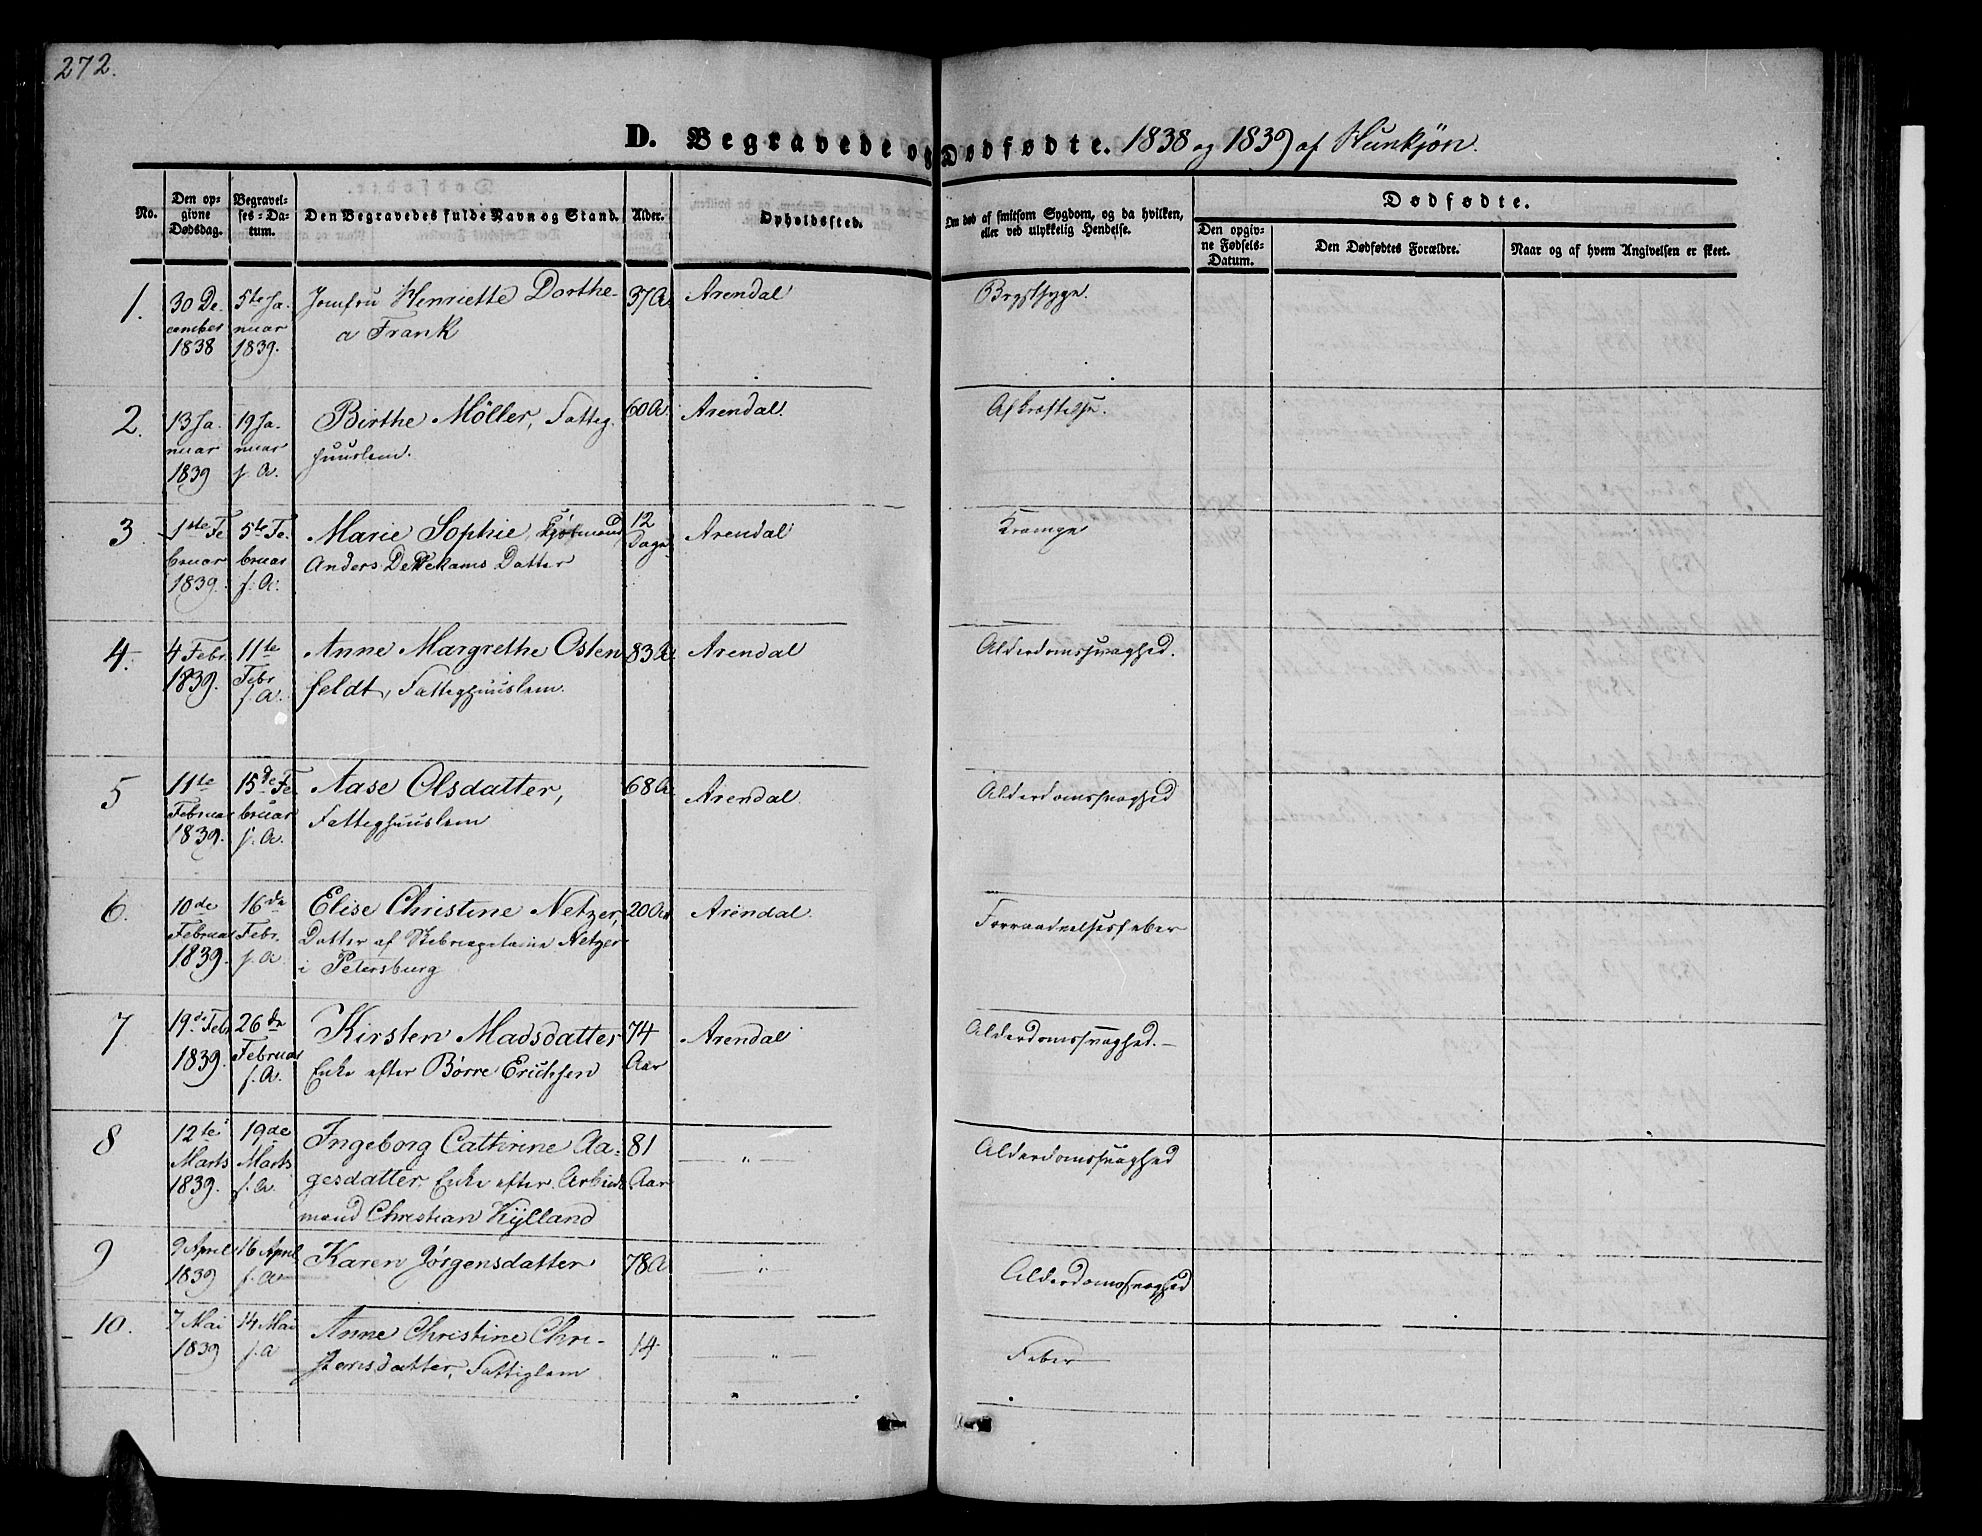 272.
D. Begravede og Dødfødte. 1838 og 1839 af Hunkjøn.
No.
Den opgivne Dødsdag.
Begravelses-Datum.
Den Begravedes fulde Navn og Stand.
Alder.
Opholdssted.
Om død af smitsom Sygdom, og da hvilken, eller ved ulykkelig Hendelse.
Dødfødte.
Den opgivne Fødsels-Datum.
Den Dødfødtes Forældre.
Naar og af hvem Angivelsen er skeet.
1. 30 De- 5te Ja- Jomfru Henriette Dorthe- 37 A. Arendal Brystsyge.
cember nuar a Frank
1838 1839.
2. 13 Ja- 19 Ja- Birthe Möller, Fattig- 60 A. Arendal. Afkræftelse.
nuar nuar huuslem.
1839 s. A.
3. 1ste Fe- 5te Fe- Marie Sophie, 12 Arendal Krampe
bruar bruar Anders Datter Dage
1839. s. A.
4. 4 Febr. 11te Anne Margrethe Osten 83 A. Arendal Alderdomssvaghed.
1839. Febr. feldt, Fatteghuuslem.
s. A.
5 11te 15de Fe- Aase Olsdatter, 68 A Arendal. Alderdomssvaghed
Februar bruar Fatteghuuslem
1839. s. A.
6. 10de 16de Elise Christine Netzer, 20 Aar Arendal Forraadnelsesfeber
Februar Febr. Datter af Netzer
1839. s. A. i Petersburg
7 19de Febr 26de Kirsten Madsdatter 74 Arendal Alderdomssvaghed.
1839. Februar Enke efter Børre Erichsen Aar
s. A.
8 12te 19de Ingeborg Cathrine Aa- 81 — " — Alderdomssvaghed
Marts Marts gesdatter. Enke efter Arbeids Aar
1839. s. A. mand Christian Kylland
9 9 April 16 April Karen Jørgensdatter 78 A — " — Alderdomssvaghed
1839 s. A
10. 7 Mai 14 Mai Anne Christine Chri- 14 — " — Feber
1839 s. A stensdatter, Fattiglem